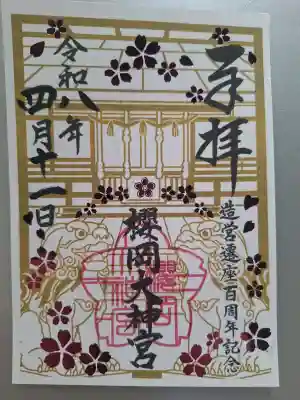 奉拝
造営遷座百周年記念
櫻岡大神宮
令和八年
四月十一日